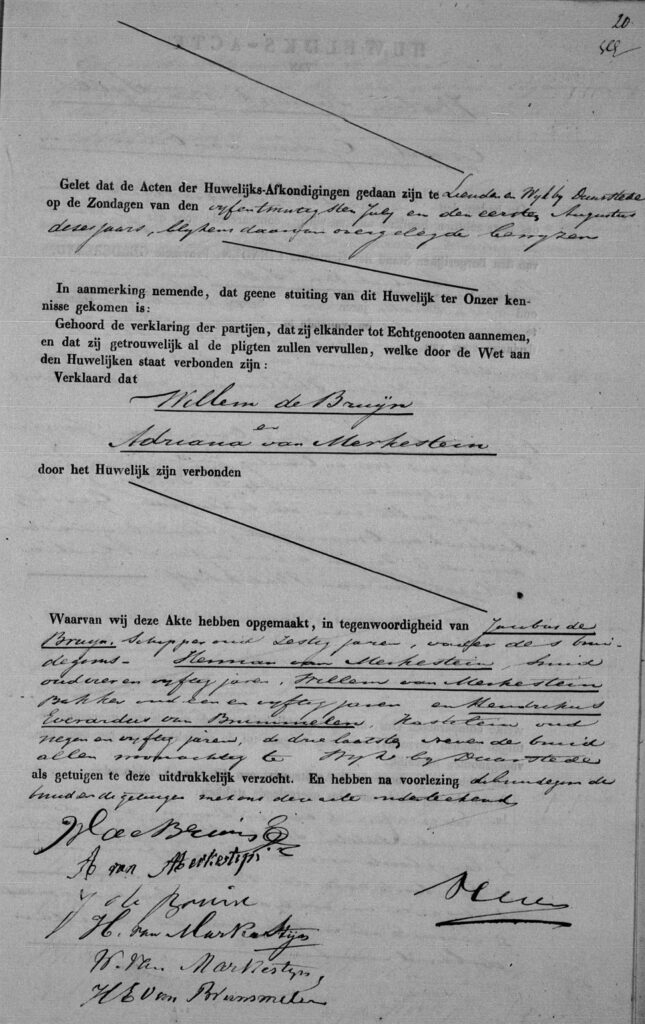 20.
Gelet dat de Acten der Huwelijks-Afkondigingen gedaan zijn te Lienden en Wyk by Duurstede
op de Zondagen van den vyfentwintigsten July en den eersten Augustus
dezes jaars, blykens daarvan overgelegde bewyzen
In aanmerking nemende, dat geene stuiting van dit Huwelijk ter Onzer ken-
nisse gekomen is:
Gehoord de verklaring der partijen, dat zij elkander tot Echtgenooten aannemen,
en dat zij getrouwelijk al de pligten zullen vervullen, welke door de Wet aan
den Huwelijken staat verbonden zijn:
Verklaard dat
Willem de Bruijn
en
Adriana van Merkestein
door het Huwelijk zijn verbonden
Waarvan wij deze Akte hebben opgemaakt, in tegenwoordigheid van Jacobus de
Bruyn, Schipper oud zestig jaren, vader des brui-
degoms - Herman van Merkestein, Smid
oud vier en vyftig jaren, Willem van Merkestein
Bakker oud een en vyftig jaren en Hendrikus
Everardus van Brummelen, Kastelein oud
negen en vyftig jaren, de drie laatsten der bruid
allen woonachtig te Wyk by Duurstede
als getuigen te deze uitdrukkelijk verzocht. En hebben na voorlezing de bruidegom de
bruid en de getuigen met ons deze acte onderteekend
W de Bruin
A van Merkestyn
J de Bruin
H. van Markestyn
W. van Markestyn,
H E van Brummelen